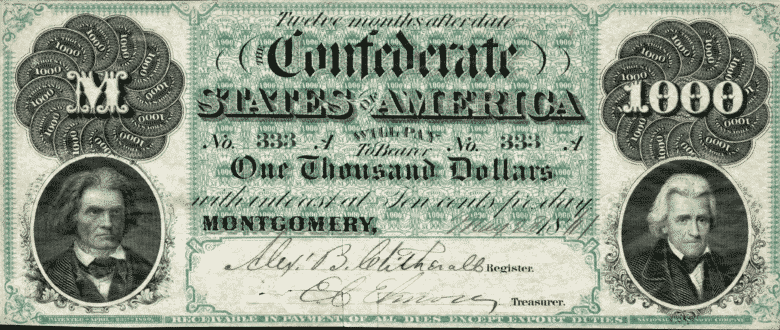 Twelve months after date
THE Confederate
STATES OF AMERICA
M
1000
WILL PAY
No. 333 A To Bearer No. 333 A
One Thousand Dollars
with interest at Ten cents per day
MONTGOMERY, 1861
Alexr. B. Clitherall Register.
E C Elmore Treasurer.
RECEIVABLE IN PAYMENT OF ALL DUES EXCEPT EXPORT DUTIES
NATIONAL BANK NOTE COMPANY